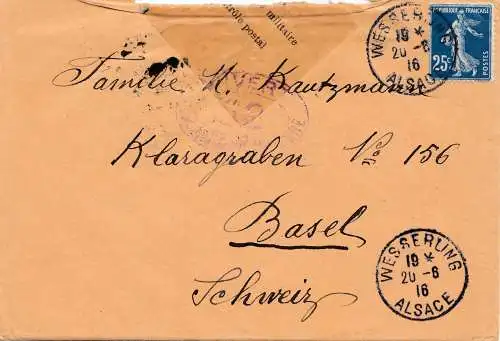 militaire
trôle postal
WESSERLING
19 *
20 -6
16
ALSACE
REPUBLIQUE FRANÇAISE
25c
Familie M. Kautzmann
OUVERT
Klaragraben No 156
Basel
Schweiz
WESSERLING
19 *
20 -6
16
ALSACE